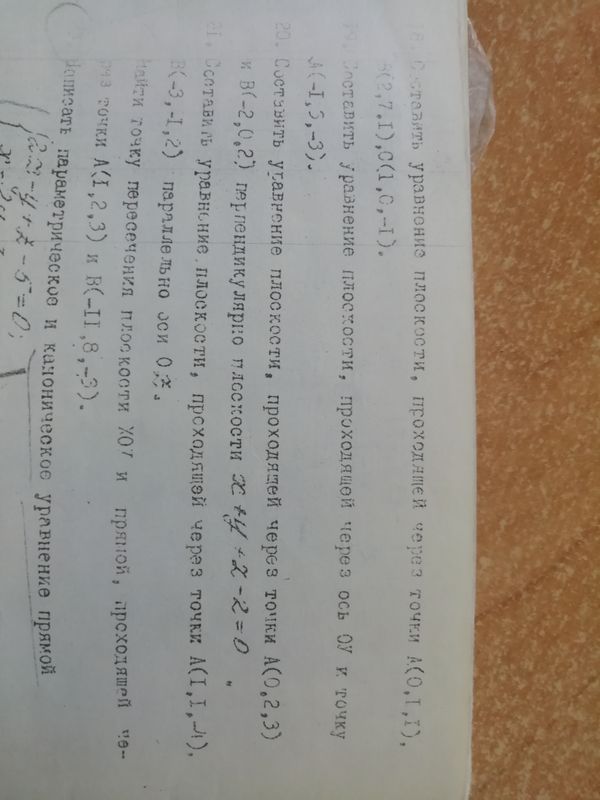 18. Составить уравнение плоскости, проходящей через точки A(0,I,I),
B(2,7,I),C(1,0,-I).
19. Составить уравнение плоскости, проходящей через ось ОУ и точку
A(-I,5,-3).
20. Составить уравнение плоскости, проходящей через точки A(0,2,3)
и B(-2,0,2) перпендикулярно плоскости x+y+z-2=0
21. Составить уравнение плоскости, проходящей через точки A(I,I,-4),
B(-3,-I,2) параллельно оси Oz.
Найти точку пересечения плоскости и прямой, проходящей че-
рез точки A(I,2,3) и B(-II,8,-3).
Написать параметрическое и каноническое уравнение прямой
2x-y+z-5=0;